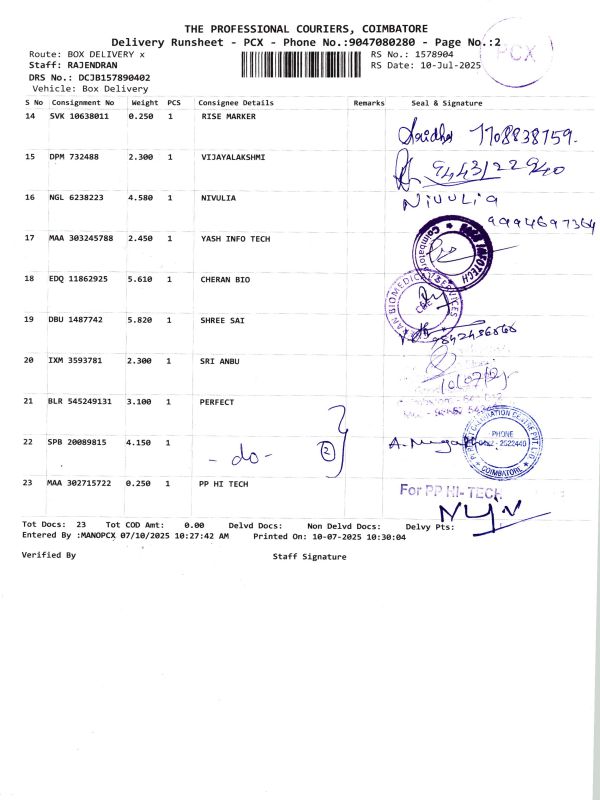 THE PROFESSIONAL COURIERS, COIMBATORE
Delivery Runsheet - PCX - Phone No.:9047080280 - Page No.:2
PCX
Route: BOX DELIVERY x
RS No.: 1578904
Staff: RAJENDRAN
RS Date: 10-Jul-2025
DRS No.: DCJB157890402
Vehicle: Box Delivery
S No Consignment No Weight PCS Consignee Details Remarks Seal & Signature
14 SVK 10638011 0.250 1 RISE MARKER
7708838759.
15 DPM 732488 2.300 1 VIJAYALAKSHMI
9443122940
16 NGL 6238223 4.580 1 NIVULIA
NIVULIA
9994697364
17 MAA 303245788 2.450 1 YASH INFO TECH
INFOTECH
Coimbatore
18 EDQ 11862925 5.610 1 CHERAN BIO
BIOMEDICAL SERVICES
CBE
19 DBU 1487742 5.820 1 SHREE SAI
9842436868
20 IXM 3593781 2.300 1 SRI ANBU
10/07/25
21 BLR 545249131 3.100 1 PERFECT
22 SPB 20089815 4.150 1 - do - 2
PHONE
2522440
COIMBATORE
23 MAA 302715722 0.250 1 PP HI TECH
For PP HI-TECH
Tot Docs: 23 Tot COD Amt: 0.00 Delvd Docs: Non Delvd Docs: Delvy Pts:
Entered By :MANOPCX 07/10/2025 10:27:42 AM Printed On: 10-07-2025 10:30:04
Verified By Staff Signature